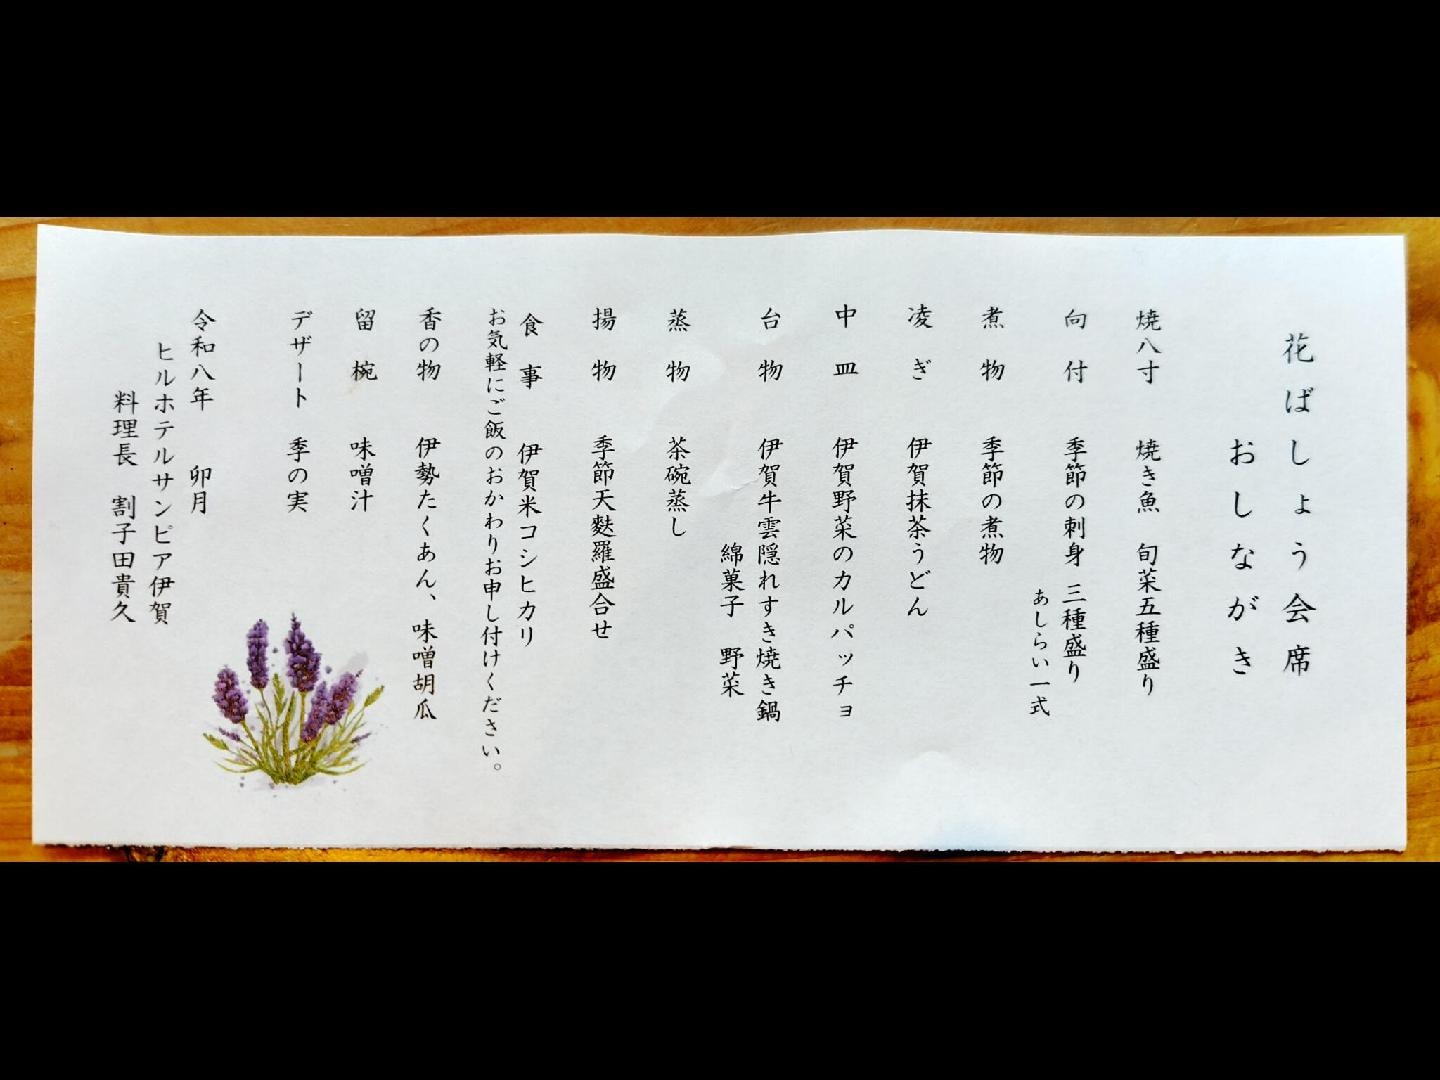 花ばしょう会席
おしながき
焼八寸 焼き魚 旬菜五種盛り
向付 季節の刺身 三種盛り
あしらい一式
煮物 季節の煮物
凌ぎ 伊賀抹茶うどん
中皿 伊賀野菜のカルパッチョ
台物 伊賀牛雲隠れすき焼き鍋
綿菓子 野菜
蒸物 茶碗蒸し
揚物 季節天麩羅盛合せ
食事 伊賀米コシヒカリ
お気軽にご飯のおかわりお申し付けください。
香の物 伊勢たくあん、味噌胡瓜
留椀 味噌汁
デザート 季の実
令和八年 卯月
ヒルホテルサンピア伊賀
料理長 割子田貴久